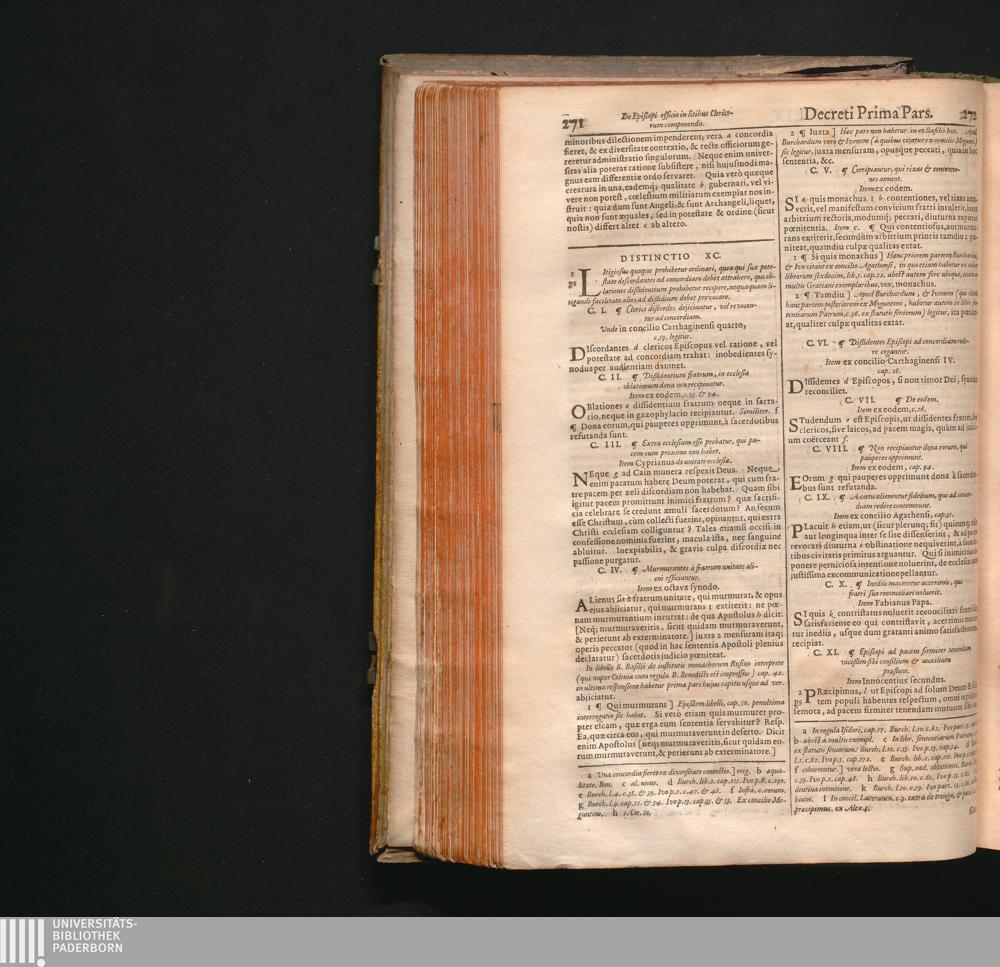 271
De Episcopi officio in litibus Clerico-
rum componendis.
minoribus dilectionem impenderent; vera a concordia
fieret, & ex diversitate contextio, & recte officiorum ge-
reretur administratio singulorum. Neque enim univer-
sitas alia poterat ratione subsistere, nisi hujusmodi ma-
gnus eam differentiæ ordo servaret. Quia verò quæque
creatura in una, eademq; qualitate b gubernari, vel vi-
vere non potest, cœlestium militiarum exemplar nos in-
struit: quia dum sunt Angeli, & sunt Archangeli, liquet,
quia non sunt æquales, sed in potestate & ordine (sicut
nostis) differt alter c ab altero.
DISTINCTIO XC.
Litigiosus quoque prohibetur ordinari, quoq; qui sua pote-
state discordantes ad concordiam debet attrahere, qua ob-
lationes dissidentium prohibetur recipere, nequaquam li-
tigandi facilitate alios ad dissidium debet provocare.
C. I. ¶ Clerici discordes dejiciantur, vel revocen-
tur ad concordiam.
Unde in concilio Carthaginensi quarto,
c.59. legitur.
DIscordantes d clericos Episcopus vel ratione, vel
potestate ad concordiam trahat: inobedientes sy-
nodus per audientiam damnet.
C. II. ¶ Dissidentium fratrum, in ecclesia
oblationum dona non recipiantur.
Item ex eodem, c.93. & 94.
OBlationes e dissidentium fratrum neque in sacra-
rio, neque in gazophylacio recipiantur. Similiter. f
¶ Dona eorum, qui pauperes opprimunt, à sacerdotibus
refutanda sunt.
C. III. ¶ Extra ecclesiam esse probatur, qui pa-
cem cum proximo non habet.
Item Cyprianus de unitate ecclesiæ.
NEque g ad Cain munera respexit Deus. Neque
enim pacatum habere Deum poterat, qui cum fra-
tre pacem per zeli discordiam non habebat. Quam sibi
igitur pacem promittunt inimici fratrum? quæ sacrifi-
cia celebrare se credunt æmuli sacerdotum? An secum
esse Christum, cùm collecti fuerint, opinantur, qui extra
Christi ecclesiam colliguntur? Tales etiamsi occisi in
confessione nominis fuerint, macula ista, nec sanguine
abluitur. Inexpiabilis, & gravis culpa discordiæ nec
passione purgatur.
C. IV. ¶ Murmurantes à fratrum unitate ali-
eni efficiantur.
Item ex octava synodo.
ALienus sit à fratrum unitate, qui murmurat, & opus
ejus abjiciatur, qui murmurans 1 extiterit: ne pœ-
nam murmurantium incurrat: de qua Apostolus h dicit.
[Neq; murmuraveritis, sicut quidam murmuraverunt,
& perierunt ab exterminatore.] juxta 2 mensuram itaq;
operis peccator (quod in hac sententia Apostoli plenius
declaratur) sacerdotis judicio pœniteat.
In libello B. Basilii de institutis monachorum Rufino interprete
(qui nuper Coloniæ cum regula B. Benedicti est impressus) cap. 42.
in ultima responsione habetur prima pars hujus capitu usque ad ver.
abjiciatur.
1 ¶ Qui murmurans ] Ejusdem libelli, cap. 50. penultima
interrogatio sic habet. Si verò etiam quis murmuret pro-
pter elcam, quæ erga eum sententia servabitur? Resp.
Ea, quæ circa eos, qui murmuraverunt in deserto. Dicit
enim Apostolus [neq; murmuraveritis, sicut quidam eo-
rum murmuraverunt, & perierunt ab exterminatore.]
a Una concordia fieret ex diversitate contextio.] orig. b æqua-
litate. Bon. c al. unus. d Burch. lib.2. cap.215. Ivo p.6. c.290.
e Burch. l.4. c.38. & 39. Ivo p.2. c.47. & 48. f Infra, c. eorum.
g Burch. l.9. cap.52. & 54. Ivo p.13. cap.35. & 53. Ex concilio Mo-
guntino. h 1. Cor. 10.
Decreti Prima Pars. 272
2 ¶ Iuxta ] Hæc pars non habetur in eo Basilii loco. Apud
Burchardum verò & Ivonem (à quibus citatur ex concilio Mogunt.)
sic legitur, juxta mensuram, opusque peccati, quia in hac
sententia, &c.
C. V. ¶ Corripiantur, qui rixas & contentio-
nes amant.
Item ex eodem.
SI a quis monachus 1 b contentiones, vel rixas ama-
verit, vel manifestum convicium fratri intulerit, juxta
arbitrium rectoris, modumq; peccati, diuturna expietur
pœnitentia. Item c. ¶ Qui contentiosus, aut murmu-
rans extiterit, secundùm arbitrium prioris tamdiu 2 pœ-
niteat, quamdiu culpæ qualitas extat.
1 ¶ Si quis monachus ] Hanc priorem partem Burchardus,
& Ivo citant ex concilio Agathensi, in quo etiam habetur ex codice
librorum sexdecim, lib.1. cap.22. abest autem fere ubique, etiam a
multis Gratiani exemplaribus, vox, monachus.
2 ¶ Tamdiu ] Apud Burchardum, & Ivonem (qui citant
hanc partem posteriorem ex Moguntino, habetur autem in libro sen-
tentiarum Patrum, c.98. ex statutis seniorum) legitur, ita pœnite-
at, qualiter culpæ qualitas extat.
C. VI. ¶ Dissidentes Episcopi ad concordiam redi-
re cogantur.
Item ex concilio Carthaginensi IV.
cap. 26.
DIssidentes d Episcopos, si non timor Dei, synodus
reconciliet.
C. VII. ¶ De eodem.
Item ex eodem, c.26.
STudendum e est Episcopis, ut dissidentes fratres, sive
clericos, sive laicos, ad pacem magis, quàm ad judici-
um coërceant f.
C. VIII. ¶ Non recipiantur dona eorum, qui
pauperes opprimunt.
Item ex eodem, cap. 94.
EOrum g qui pauperes opprimunt dona à sacerdoti-
bus sunt refutanda.
C. IX. ¶ A cœtu alienentur fidelium, qui ad concor-
diam redire contemnunt.
Item ex concilio Agathensi, cap.31.
PLacuit h etiam, ut (sicut plerunq; fit) quicunq; odio
aut longinqua inter se lite dissenserint, & ad pacem
revocari diuturna i obstinatione nequiverint, à sacerdo-
tibus civitatis primitus arguantur. Qui si inimicitias de-
ponere perniciosa intentione noluerint, de ecclesiæ cœtu
justissima excommunicatione pellantur.
C. X. ¶ Inediis maceretur acerrimis, qui
fratri suo reconciliari noluerit.
Item Fabianus Papa.
SI quis k contristatus noluerit reconciliari fratri suo,
satisfaciente eo qui contristavit, acerrimis macere-
tur inediis, usque dum gratanti animo satisfactionem
recipiat.
C. XI. ¶ Episcopi ad pacem firmiter tenendam
vicissim sibi consilium & auxilium
præstent.
Item Innocentius secundus.
PRæcipimus, l ut Episcopi ad solum Deum & salu-
tem populi habentes respectum, omni tepiditate
semota, ad pacem firmiter tenendam mutuum sibi con-
a In regula Isidori, cap.17. Burch. l.10. c.62.
b abest à multis exempl. c In libr. sententiarum Patrum,
ex statutis seniorum; Burch. l.10. c.53. Ivo p.13. cap.54.
l.1. c.62. Ivo p.5. cap.172. e Burch. lib.2.
f cohortentur.] vera lectio. g Sup. ead. oblationes.
c.39. Ivo p.2. cap.48. h Burch. lib.10. c.61. Ivo p.13.
diutina intentione. k Burch. l.10. c.59. Ivo part. 13.
biani. l In concil. Lateranen. c.9. extra de treuga, & pace.
præcipimus. ex Alex.4.
UNIVERSITÄTS-
BIBLIOTHEK
PADERBORN